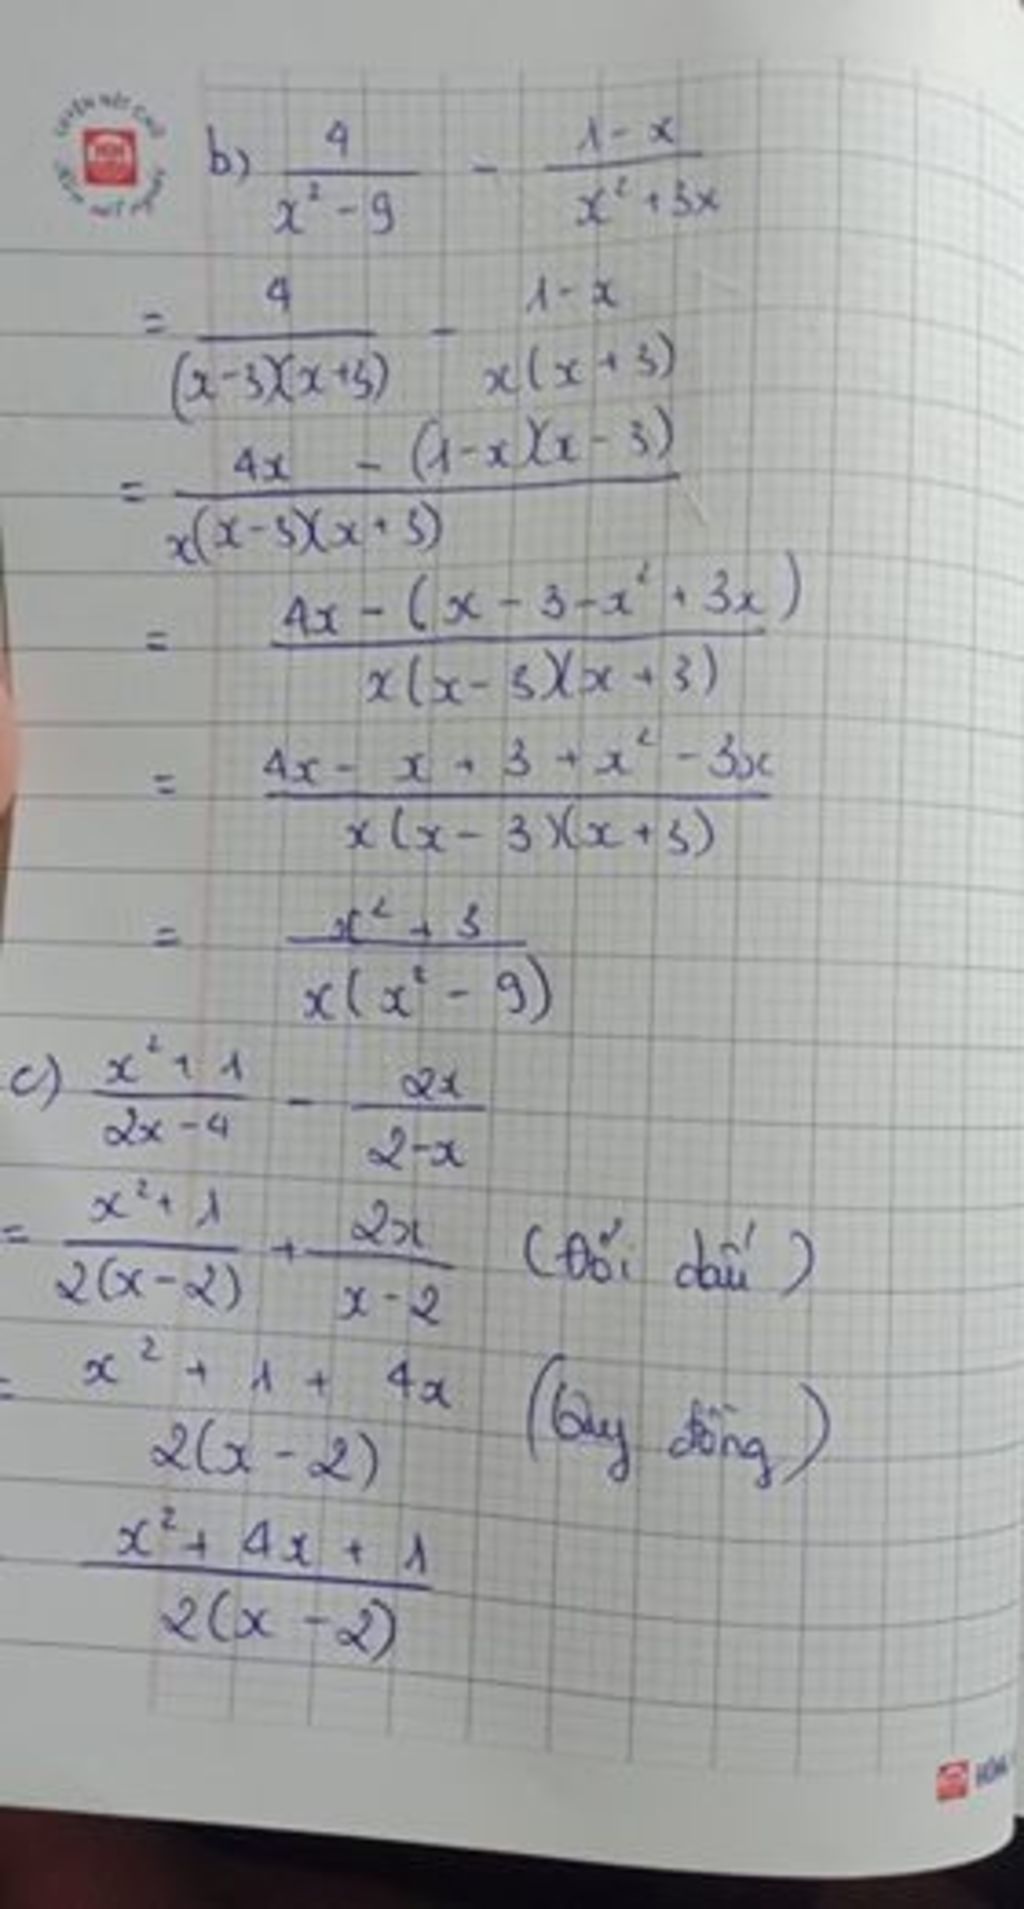 b) 4/(x² - 9) - (1 - x)/(x² + 3x)
= 4/((x - 3)(x + 3)) - (1 - x)/(x(x + 3))
= (4x - (1 - x)(x - 3))/(x(x - 3)(x + 3))
= (4x - (x - 3 - x² + 3x))/(x(x - 3)(x + 3))
= (4x - x + 3 + x² - 3x)/(x(x - 3)(x + 3))
= (x² + 3)/(x(x² - 9))
c) (x² + 1)/(2x - 4) - 2x/(2 - x)
= (x² + 1)/(2(x - 2)) + 2x/(x - 2) (Đổi dấu)
= (x² + 1 + 4x)/(2(x - 2)) (Quy đồng)
(x² + 4x + 1)/(2(x - 2))